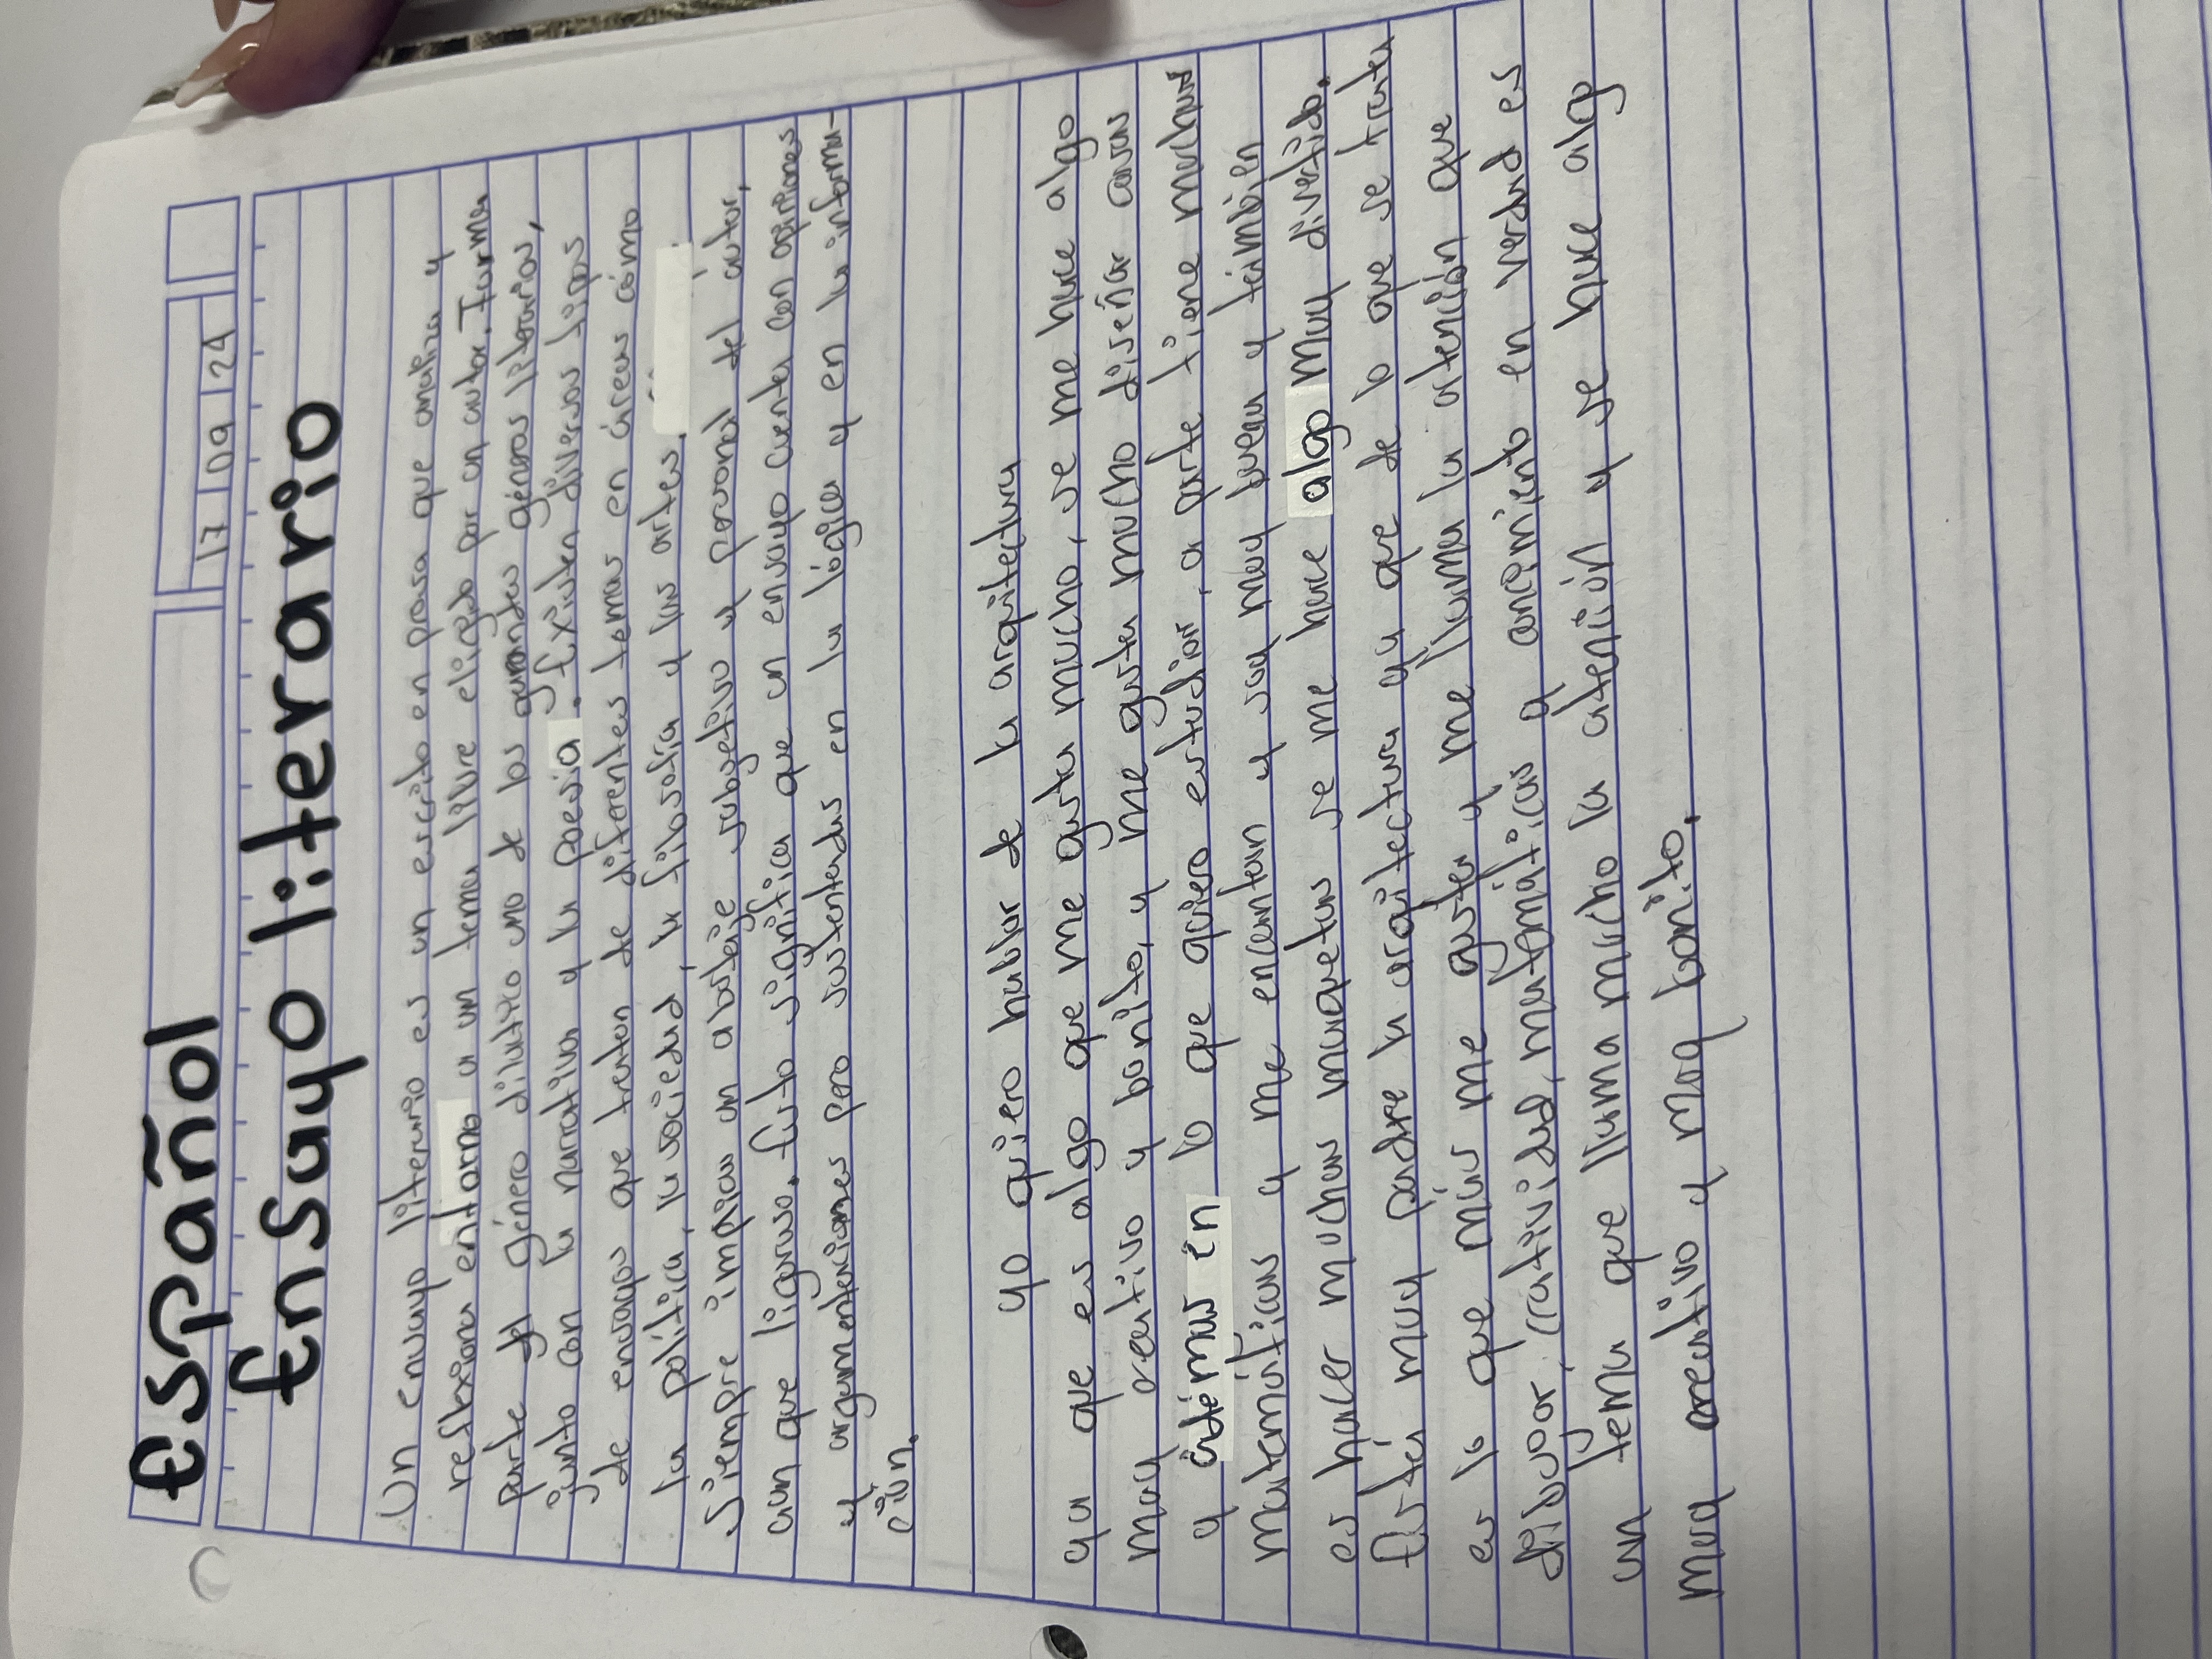 Español
17 09 24
Ensayo literario
Un ensayo literario es un escrito en prosa que analiza y
reflexiona entorno a un tema libre elegido por un autor. Forma
parte del género didáctico uno de los grandes géneros literarios,
junto con la narrativa y la poesia. Existen diversos tipos
de ensayos que tratan de diferentes temas en áreas cómo
la política, la sociedad, la filosofía y las artes.
Siempre implica un abordaje subjetivo y personal del autor,
aun que liguroso. Esto significa que un ensayo cuenta con opiniones
y argumentaciones pero sustentadas en la lógica y en la informa-
ción.
yo quiero hablar de la arquitectura
ya que es algo que me gusta mucho, se me hace algo
muy creativo y bonito, y me gusta mucho diseñar casas
y ádémas én lo que quiero estudiar, a parte tiene muchas
matemáticas y me encantan y soy muy buena y también
es hacer muchas maquetas se me hace algo muy divertido.
Esta muy padre la arquitectura ya que de lo que se trata
es lo que más me gusta y me llama la atención que
dibujar, cratividad, matemáticas y ang‎imiento en verdad es
un tema que llama mucho la atención y se hace algo
muy creativo y muy bonito.